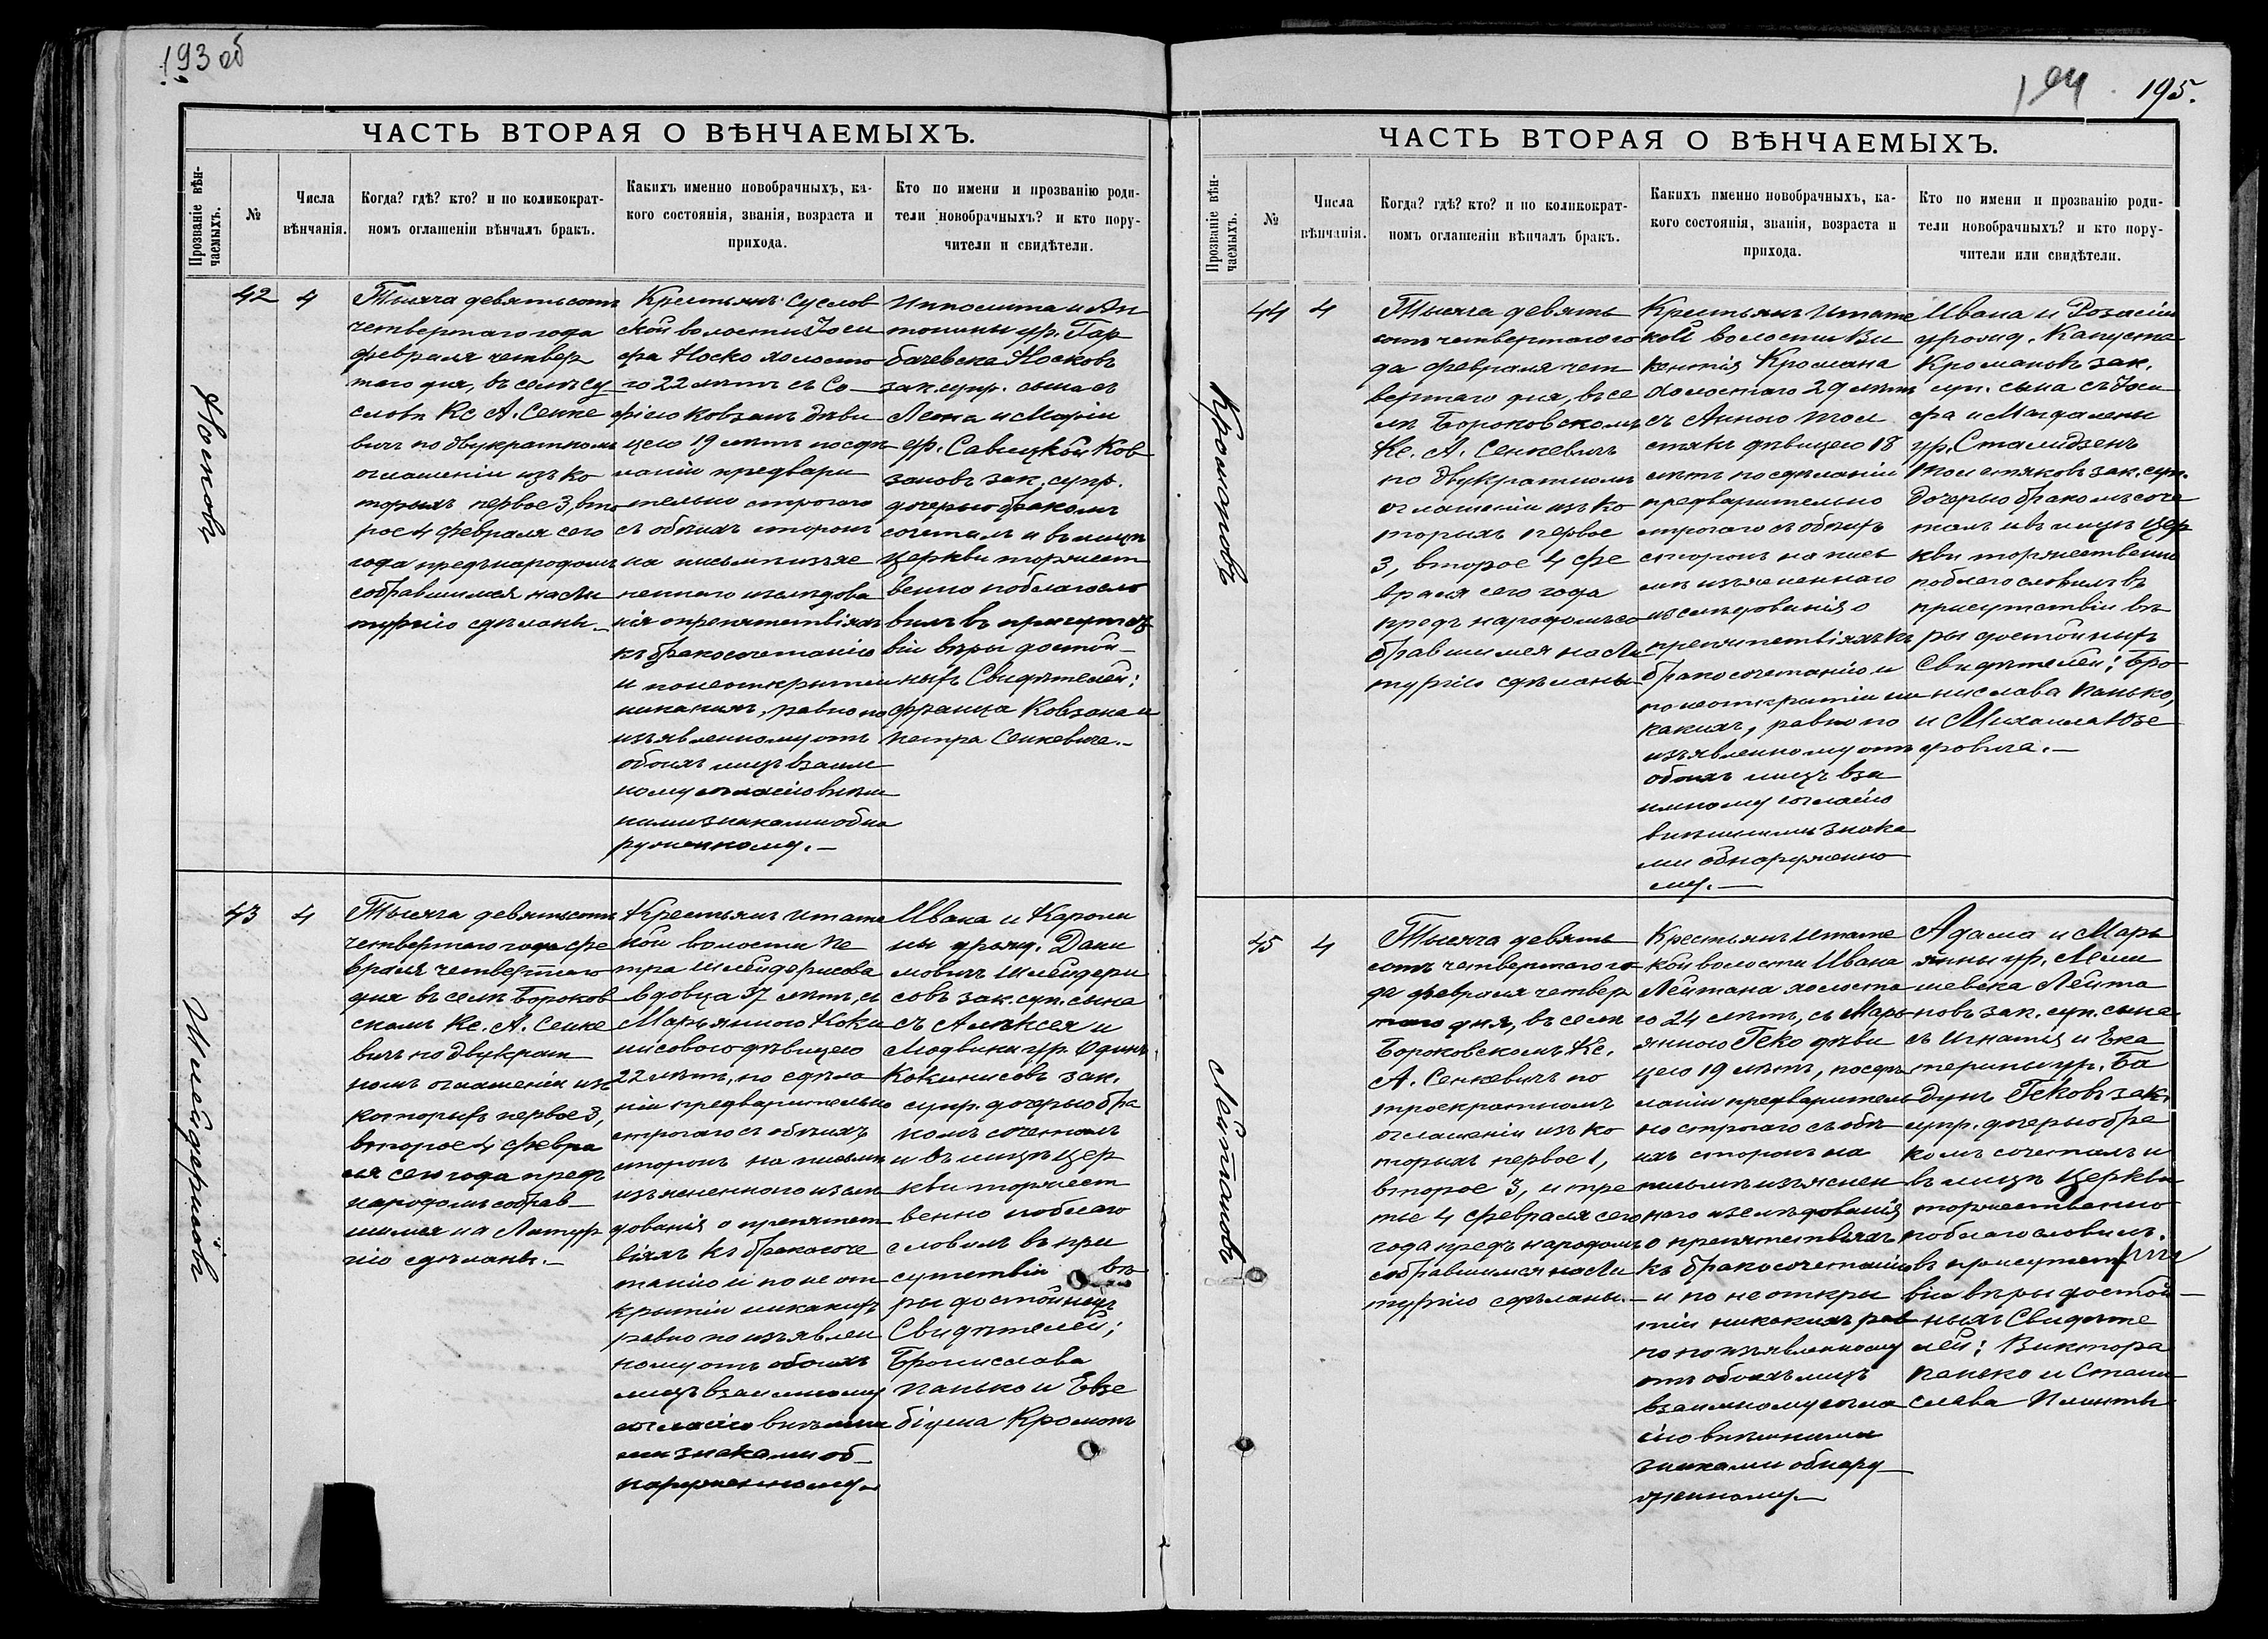 193 об
ЧАСТЬ ВТОРАЯ О ВѢНЧАЕМЫХЪ.
Прозваніе вѣн-
чаемыхъ.
№
Числа
вѣнчанія.
Когда? гдѣ? кто? и по коликократ-
номъ оглашеніи вѣнчалъ бракъ.
Какихъ именно новобрачныхъ, ка-
кого состоянія, званія, возраста и
прихода.
Кто по имени и прозванію роди-
тели новобрачныхъ? и кто пору-
чители и свидѣтели.
Носковъ
42
4
Тысяча девятьсотъ
четвертаго года
февраля четвер
таго дня, въ селѣ Су
словѣ Кс А. Сенке
вичъ по двукратномъ
оглашеніи изъ ко
торыхъ первое 3, вто
рое 4 февраля сего
года предъ народомъ
собравшимся на Ли
тургію сдѣланы.
Крестьянъ Суслов
ской волости Іоси
фа Носко холосто
го 22 лѣтъ съ Со
фіею Ковзанъ дѣви
цею 19 лѣтъ по сдѣ
ланіи предвари
тельно строгаго
съ обѣихъ сторонъ
на письмѣ изъяс
неннаго изслѣдова
нія о препятствіяхъ
къ бракосочетанію
и по неоткрытіи
никакихъ, равно по
изъявленному отъ
обоихъ лицъ взаим
ному согласію внѣш
ними знаками обна
руженному.—
Ипполита и Ан
тонины ур. Гар
бачевска Носковъ
зак. супр. сына съ
Леона и Маріи
ур. Савицкой Ков
зановъ зак. супр.
дочерью бракомъ
сочеталъ и въ лицѣ
Церкви торжест
венно поблагосло
вилъ въ присутст
віи вѣры достой—
ныхъ Свидѣтелей:
Франца Ковзана и
Петра Сенкевича.—
Шлейдерисовъ
43
4
Тысяча девятьсотъ
четвертаго года фе
враля четвертаго
дня въ селѣ Бороков
скомъ Кс. А. Сенке
вичъ по двукрат
номъ оглашеніи изъ
которыхъ первое 3,
второе 4 февра
ля сего года предъ
народомъ собрав—
шимся на Литур
гію сдѣланы.—
Крестьянъ Итатс
кой волости Пе
тра Шлейдерисова
вдовца 37 лѣтъ, съ
Марьянною Коки
нисовою дѣвицею
22 лѣтъ, по сдѣла
ніи предварительно
строгаго съ обѣихъ
сторонъ на письмѣ
изъясненнаго изслѣ
дованія о препятст
віяхъ къ бракосоче
танію и по неот
крытіи никакихъ
равно по изъявлен
ному отъ обоихъ
лицъ взаимному
согласію внѣшни
ми знаками об—
наруженному.
Ивана и Кароли
ны урожд. Дани
ловичъ Шлейдери
совъ зак. суп. сына
съ Алексея и
Людвики ур. Одинъ
Кокинисовъ зак.
супр. дочерью бра
комъ сочеталъ
и въ лицѣ Цер
кви торжест
венно поблаго
словилъ въ при
сутствіи вѣ
ры достойныхъ
Свидѣтелей;
Бронислава
Панько и Евзе
біуша Кромонъ
194 195.
ЧАСТЬ ВТОРАЯ О ВѢНЧАЕМЫХЪ.
Прозваніе вѣн-
чаемыхъ.
№
Числа
вѣнчанія.
Когда? гдѣ? кто? и по коликократ-
номъ оглашеніи вѣнчалъ бракъ.
Какихъ именно новобрачныхъ, ка-
кого состоянія, званія, возраста и
прихода.
Кто по имени и прозванію роди-
тели новобрачныхъ? и кто пору-
чители или свидѣтели.
Кромоновъ
44
4
Тысяча девять
сотъ четвертаго го
да февраля чет
вертаго дня, въ се
лѣ Бороковскомъ
Кс. А. Сенкевичъ
по двукратномъ
оглашеніи изъ ко
торыхъ первое
3, второе 4 фе
враля сего года
предъ народомъ со
бравшимся на Ли
тургію сдѣланы
Крестьянъ Итатс
кой волости Ви
кентія Кромана
холостаго 29 лѣтъ
съ Анною Тол
стякъ дѣвицею 18
лѣтъ по сдѣланіи
предварительно
строгаго съ обѣихъ
сторонъ на пись
мѣ изъясненнаго
изслѣдованія о
препятствіяхъ къ
бракосочетанію и
по неоткрытіи ни
какихъ, равно по
изъявленному отъ
обоихъ лицъ вза
имному согласію
внѣшними знака
ми обнаруженно
му.—
Ивана и Розаліи
урожд. Капуста
Кромановъ зак.
суп. сына съ Іоси
фа и Магдалены
ур. Сталидзенъ
Толстяковъ зак. суп.
дочерью бракомъ соче
талъ и въ лицѣ Цер
кви торжественно
поблагословилъ въ
присутствіи вѣ
ры достойныхъ
Свидѣтелей; Бро
нислава Панько,
и Михаила Юзе
фовича.—
Лейтановъ
45
4
Тысяча девять
сотъ четвертаго го
да февраля четвер
таго дня, въ селѣ
Бороковскомъ Кс.
А. Сенкевичъ по
троекратномъ
оглашеніи изъ ко
торыхъ первое 1,
второе 3, и тре
тье 4 февраля сего
года предъ народомъ
собравшимся на Ли
тургію сдѣланы.—
Крестьянъ Итатс
кой волости Ивана
Лейтана холоста
го 24 лѣтъ, съ Марь
янною Геко дѣви
цею 19 лѣтъ, по сдѣ
ланіи предваритель
но строгаго съ обѣ
ихъ сторонъ на
письмѣ изъяснен
наго изслѣдованія
о препятствіяхъ
къ бракосочетанію
и по неоткры
тіи никакихъ рав
но по изъявленному
отъ обоихъ лицъ
взаимному согла
сію внѣшними
знаками обнару—
женному.—
Адама и Марь
янны ур. Леми
шевска Лейта
новъ зак. суп. сына
съ Игнатія и Ека
терины ур. Ба
дунъ Гековъ зак.
супр. дочерью бра
комъ сочеталъ и
въ лицѣ Церкви
торжественно
поблагословилъ
въ присутст
віи вѣры достой—
ныхъ Свидѣте
лей: Виктора
Панько и Стани
слава